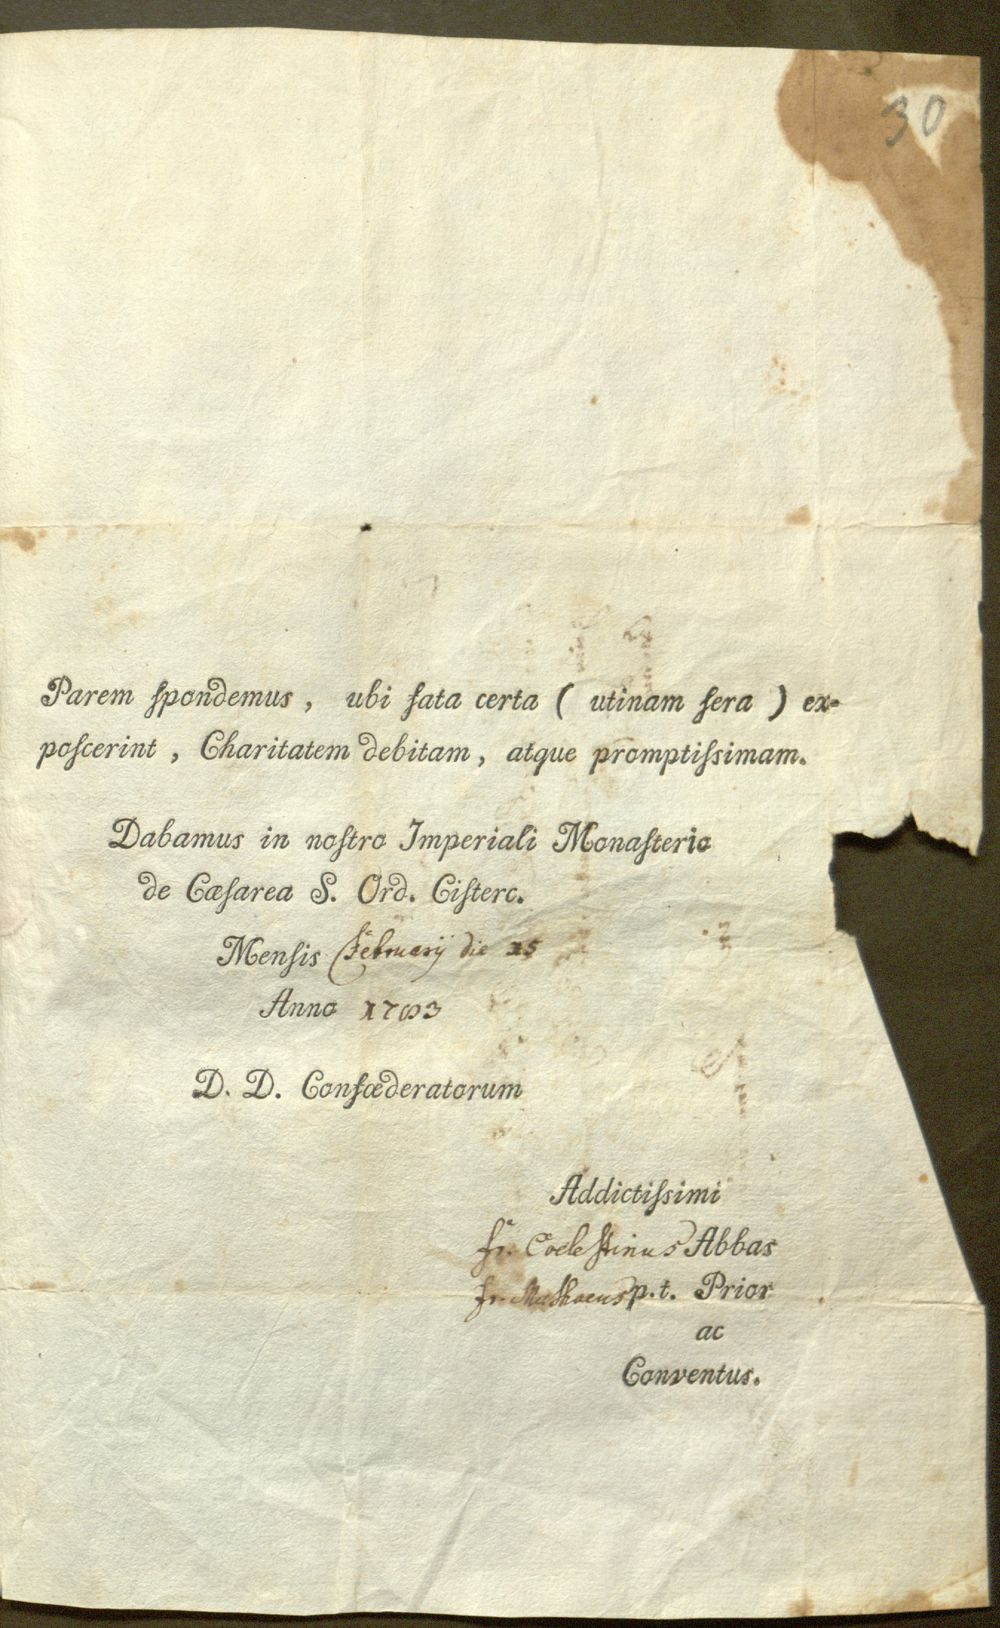 30
Parem ſpondemus, ubi fata certa ( utinam ſera ) ex-
poſcerint, Charitatem debitam, atque promptiſsimam.
Dabamus in noſtro Imperiali Monaſterio
de Cæſarea S. Ord. Ciſterc.
Menſis Februarij die 15
Anno 1783
D. D. Confœderatorum
Addictiſsimi
fr. Coelestinus Abbas
fr. Mathaeus p.t. Prior
ac
Conventus.